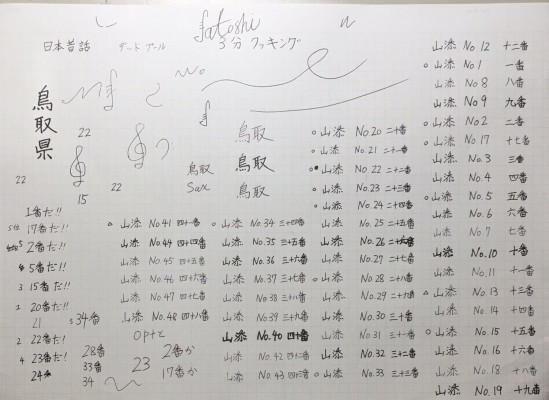 日本昔話
ゲートボール
Satoshi
3分クッキング
鳥取県
22
22
15
22
鳥取
鳥取
鳥取
鳥取
Sax
1番だ!!
17番だ!!
2番だ!!
5番だ!!
3 15番だ!!
2 20番だ!!
21
2 22番だ!
4 23番だ!
24
34番
28番
33番
34
山添 No.41 四十一番
山添 No.44 四十四番
山添 No.45 四十五番
山添 No.46 四十六番
山添 No.47 四十七番
山添 No.48 四十八番
Optと
23
2番か
17番か
山添 No.34 三十四番
山添 No.35 三十五番
山添 No.36 三十六番
山添 No.37 三十七番
山添 No.38 三十八番
山添 No.39 三十九番
山添 No.40 四十番
山添 No.42 四十二番
山添 No.43 四十三番
山添 No.20 二十番
山添 No.21 二十一番
山添 No.22 二十二番
山添 No.23 二十三番
山添 No.24 二十四番
山添 No.25 二十五番
山添 No.26 二十六番
山添 No.27 二十七番
山添 No.28 二十八番
山添 No.29 二十九番
山添 No.30 三十番
山添 No.31 三十一番
山添 No.32 三十二番
山添 No.33 三十三番
山添 No 12 十二番
山添 No.1 一番
山添 No 8 八番
山添 No 9 九番
山添 No 2 二番
山添 No 17 十七番
山添 No.3 三番
山添 No.4 四番
山添 No.5 五番
山添 No.6 六番
山添 No.7 七番
山添 No.10 十番
山添 No.11 十一番
山添 No.13 十三番
山添 No.14 十四番
山添 No.15 十五番
山添 No.16 十六番
山添 No.18 十八番
山添 No.19 十九番